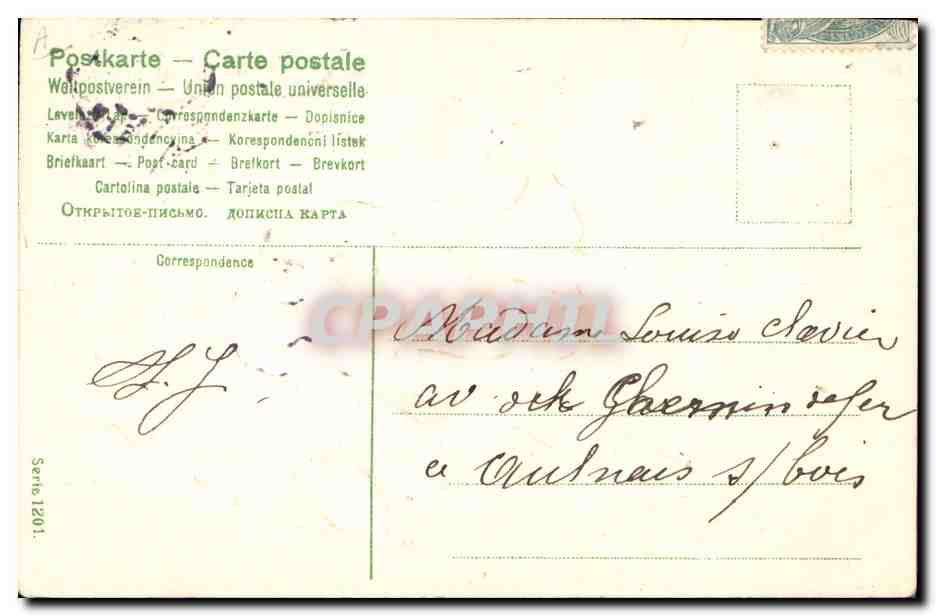 Postkarte — Carte postale
Weltpostverein — Union postale universelle
Correspondenzkarte — Dopisnice
Karta korespondencyjna — Korespondenční lístek
Briefkaart — Post card — Brefkort — Brevkort
Cartolina postale — Tarjeta postal
Открытое-письмо. дописна карта
Correspondence
CPAPHIL
Madam Louise Clavier
av
a Aulnais s/bois
Serie 1201.